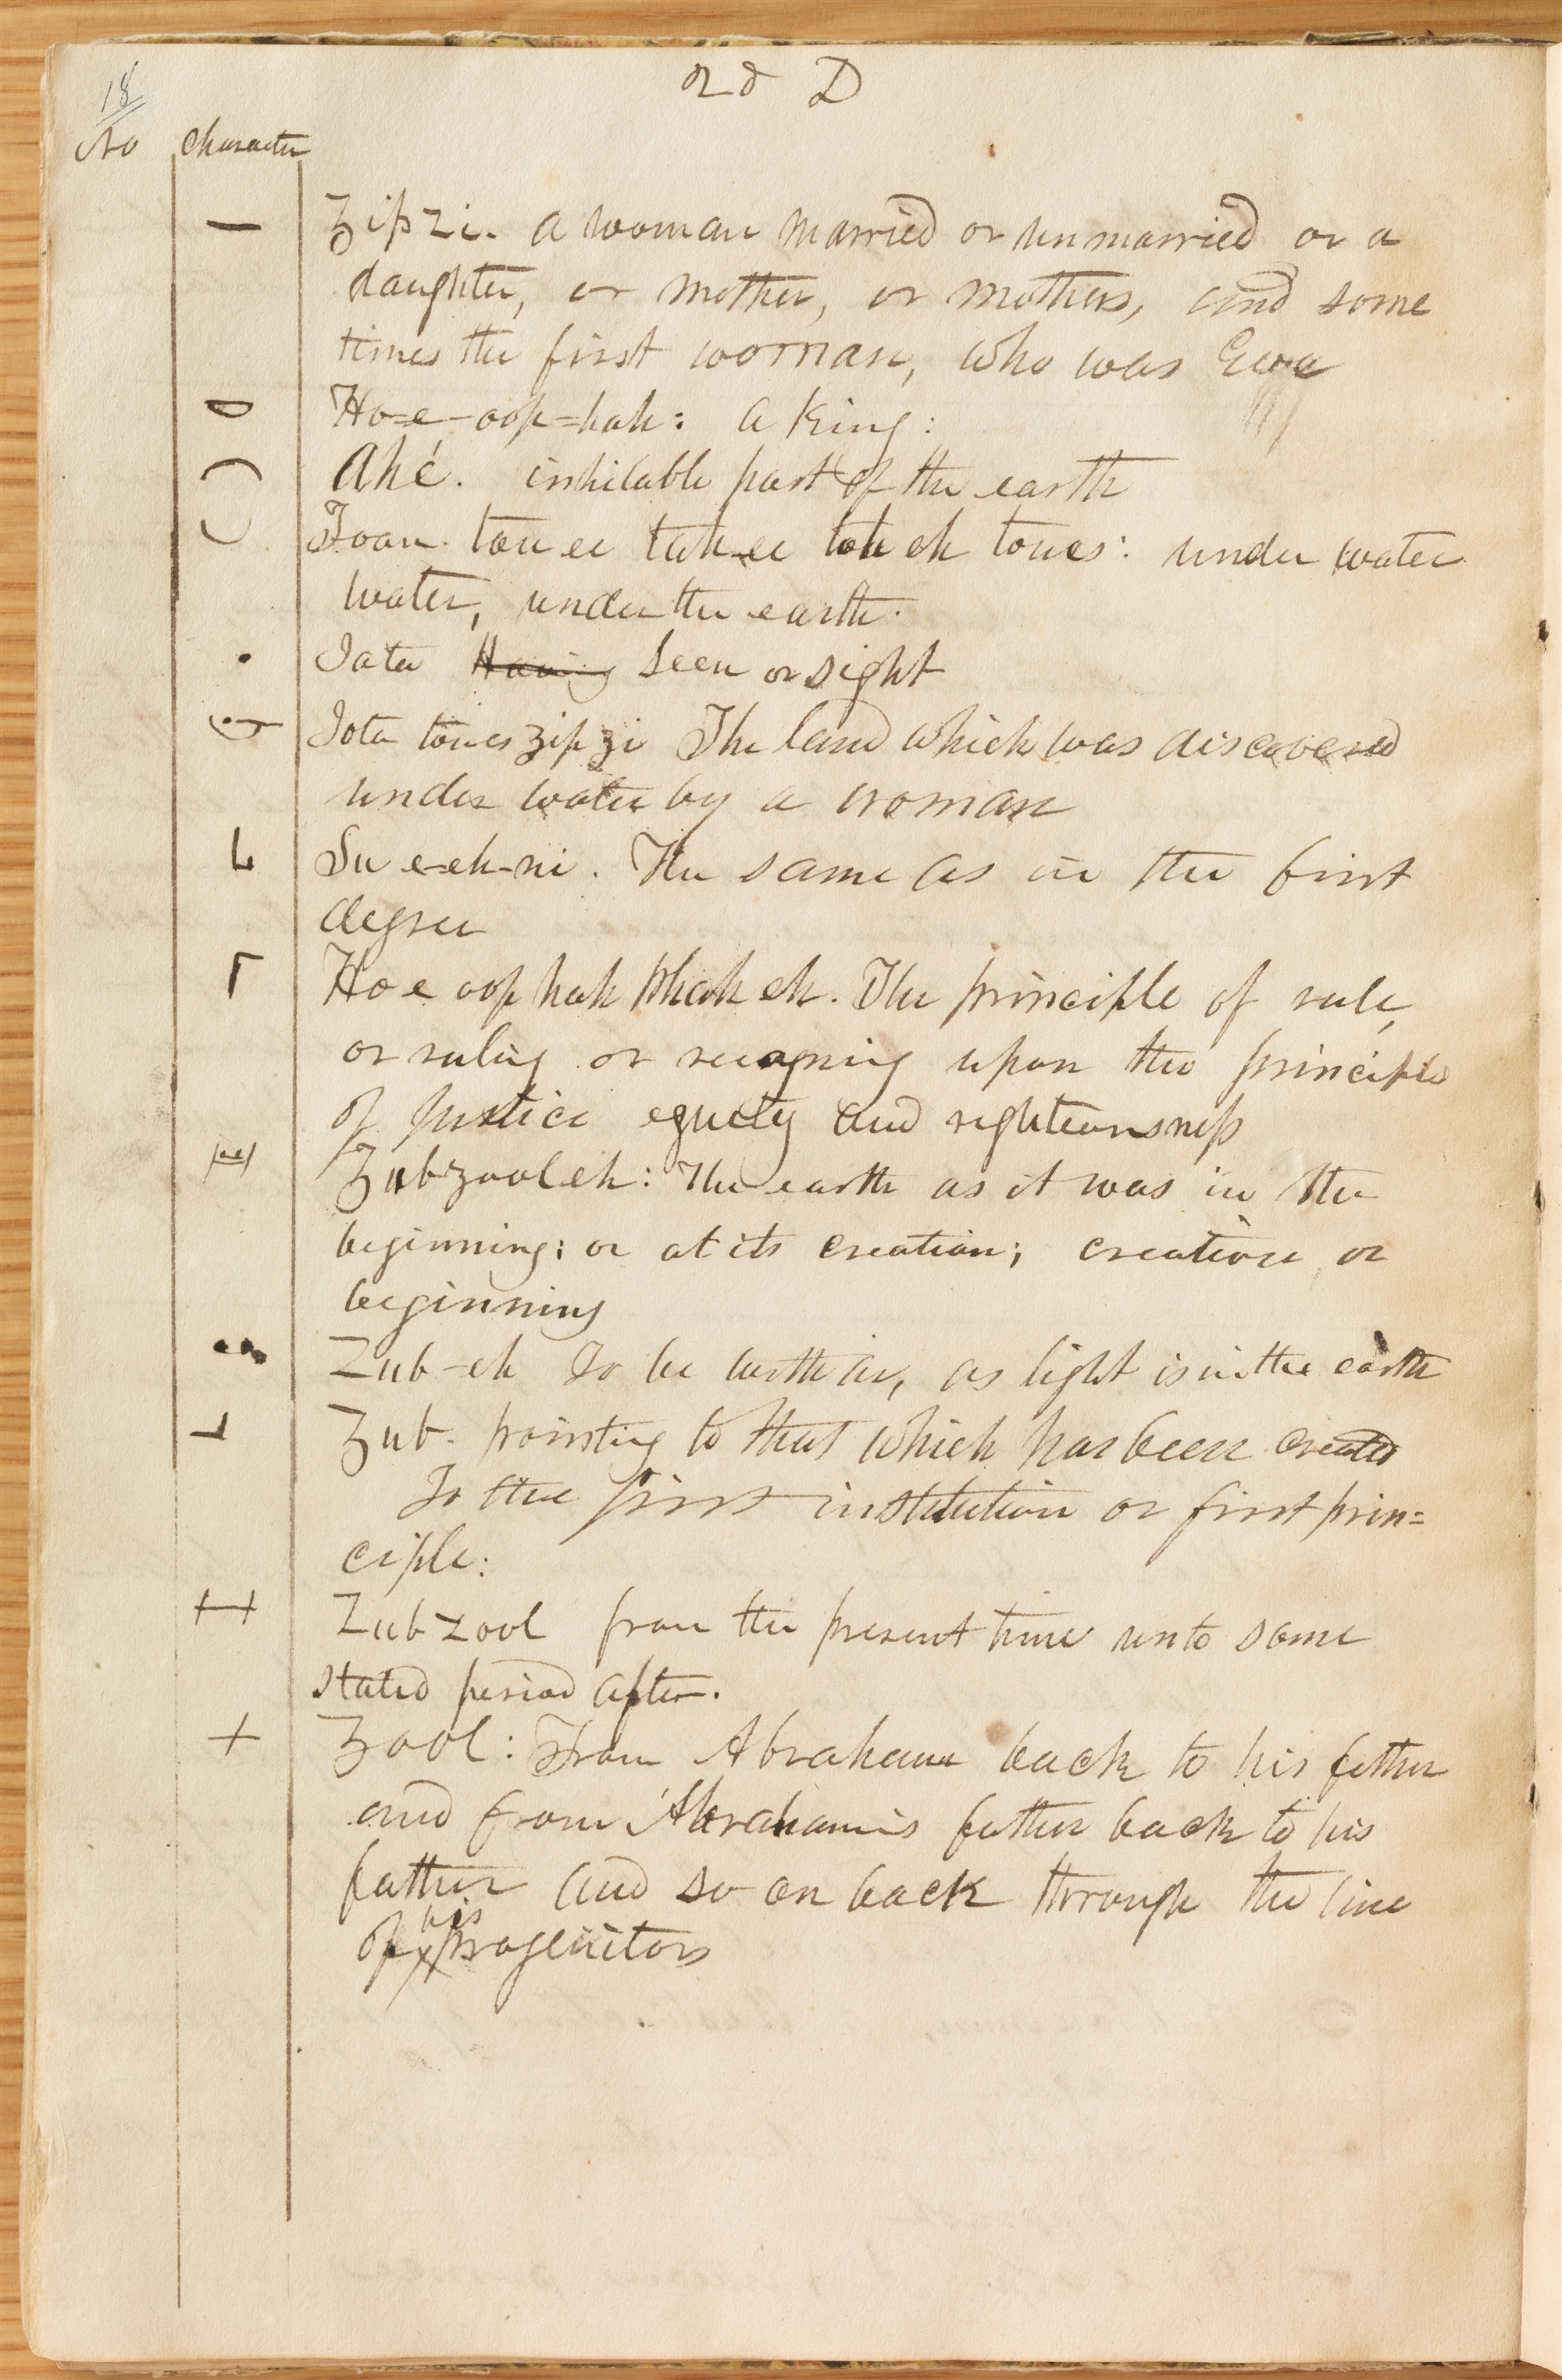 2d D
18
No character
Zip Zi. a woman married or unmarried or a
daughter, or mother, or mothers, and some
times the first woman, who was Eve
Ho=e-oop=hah: a King:
Ahé. inhitable part of the earth
toues: under water
water, under the earth.
Iata Having seen or sight
Iota toues Zip Zi The land which was discovered
under water by a woman
Su e-eh-ni. The same as in the first
degree
Ho e oop hah Phah eh. The principle of rule,
or ruling or upon the principle
of Justice equity and righteousness
Zub Zool eh: The earth as it was in the
beginning; or at its creation; creation or
beginning
Zub-eh To be as light is in the earth
Zub. pointing to that which has been created
To the first institution or first prin=
ciple:
Zub Zool from the present time unto some
stated period after.
Zool: From Abraham back to his father
and from Abraham's father back to his
father and so on back through the line
of his progenitors